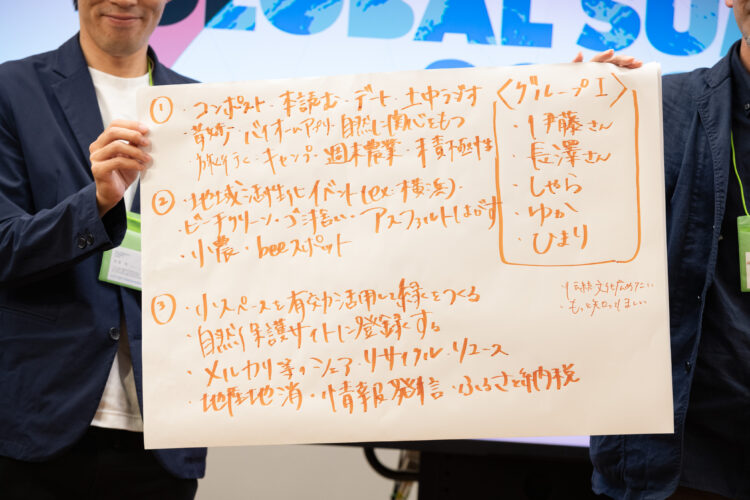 GLOBAL SU
① ・コンポスト・本読む・デート・土中ラジオ
・バイオームアプリ・自然に関心をもつ
・旅行行く・キャンプ・週末農業・積極性
② ・地域活性化イベント(ex.横浜)・
・ビーチクリーン・ゴミ拾い・アスファルトはがす
・小農・beeスポット
③ ・小スペースを有効活用して緑をつくる
・自然保護サイトに登録する
・メルカリ等のシェア・リサイクル・リユース
・地産地消・情報発信・ふるさと納税
〈グループ I〉
・伊藤さん
・長澤さん
・しゃら
・ゆか
・ひまり
・伝統文化広めたい
・もっと知ってほしい